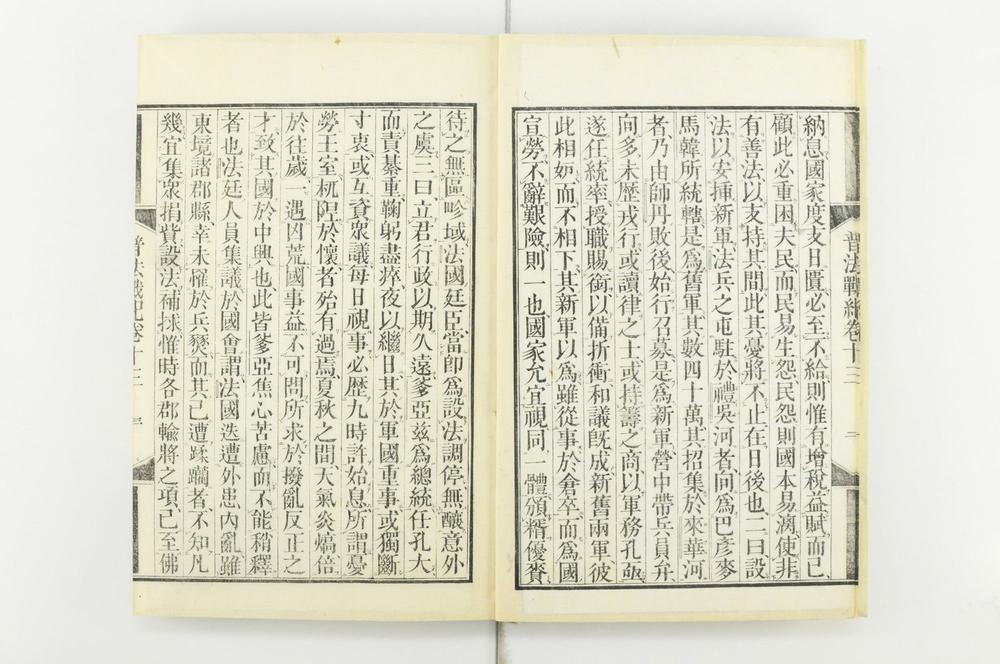 普法戰紀卷十三
納息國家度支日匱必至不給則惟有增稅益賦而已
顧此必重困夫民而民易生怨民怨則國本易漓使非
有善法以支持其間此其憂將不止在日後也二曰設
法以安揷新軍法兵之屯駐於禮吳河者向爲巴彥麥
馬韓所統轄是爲舊軍其數四十萬其招集於來華河
者乃由師丹敗後始行召募是爲新軍營中帶兵員弁
向多未歷戎行或讀律之士或持籌之商以軍務孔亟
遂任統率授職賜銜以備折衝和議旣成新舊兩軍彼
此相妒而不相下其新軍以爲雖從事於倉卒而爲國
宣勞不辭艱險則一也國家允宜視同一體頒糈優賚
待之無區畛域法國廷臣當卽爲設法調停無釀意外
之虞三曰立君行政以期久遠爹亞兹爲總統任孔大
而責綦重鞠躬盡瘁夜以繼日其於軍國重事或獨斷
寸衷或互資衆議每日視事必歷九時許始息所謂憂
勞王室杌隉於懷者殆有過焉夏秋之間天氣炎熇倍
於往歲一遇凶荒國事益不可問所求於撥亂反正之
才致其國於中興也此皆爹亞焦心苦慮而不能稍釋
者也法廷人員集議於國會謂法國迭遭外患內亂雖
東境諸郡縣幸未罹於兵燹而其已遭蹂躪者不知凡
幾宜集衆捐貲設法補捄惟時各郡輸將之項已至佛
普法戰紀卷十三
一